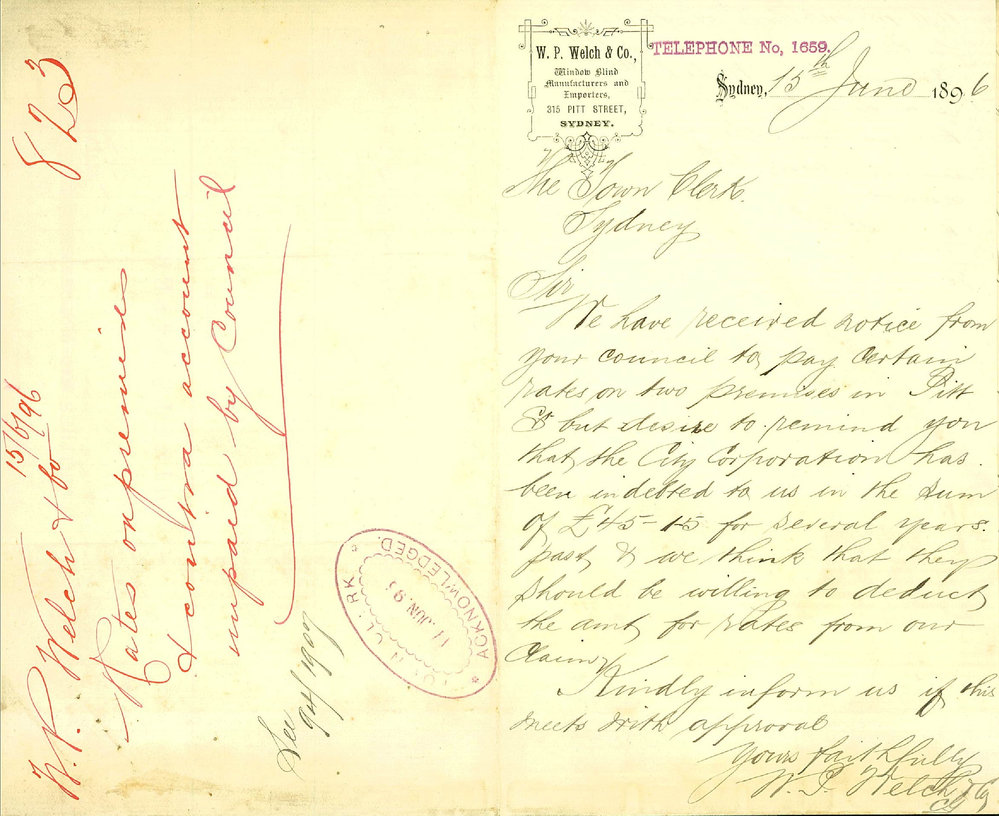 W. P. Welch & Co.,
Window Blind
Manufacturers and
Importers,
315 PITT STREET,
SYDNEY.
TELEPHONE No, 1659.
Sydney, 15th June 1896
The Town Clerk
Sydney
Sir
We have received notice from
your council to pay certain
rates on two premises in Pitt
St but desire to remind you
that the City Corporation has
been indebted to us in the sum
of £45-15 for several years
past & we think that they
should be willing to deduct
the amt for rates from our
claim
Kindly inform us if this
meets with approval
Yours faithfully
W. P. Welch & Co
823
15/6/96
W. P. Welch & Co
Rates on premises
& contra account
unpaid by Council
See
94/1907
TOWN CLERK
JUN. 96
ACKNOWLEDGED.